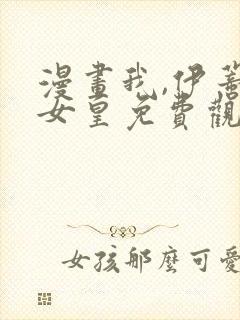 漫畫我,伊蕾
女皇免費觀
女孩那麼可愛